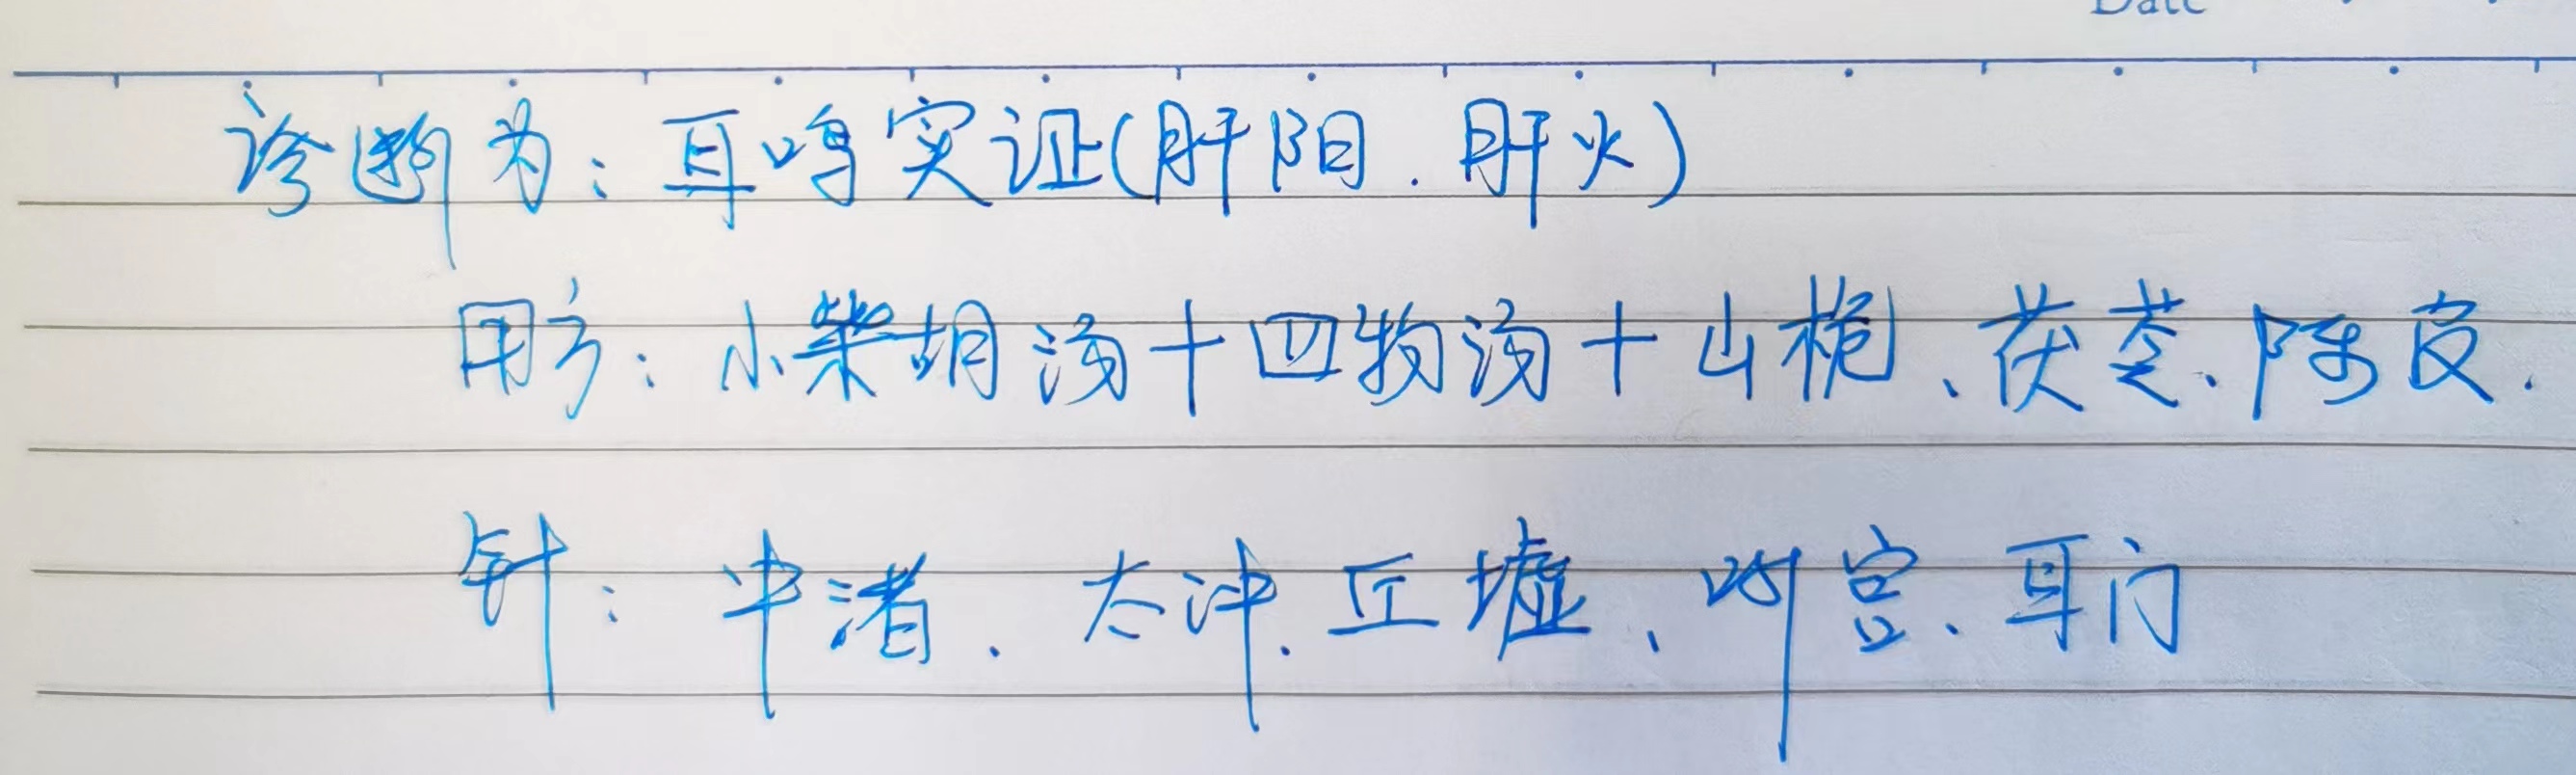 Date
诊断为：耳鸣实证(肝阳.肝火)
用方：小柴胡汤+四物汤+山栀、茯苓、陈皮.
针：中渚、太冲.丘墟、听宫、耳门